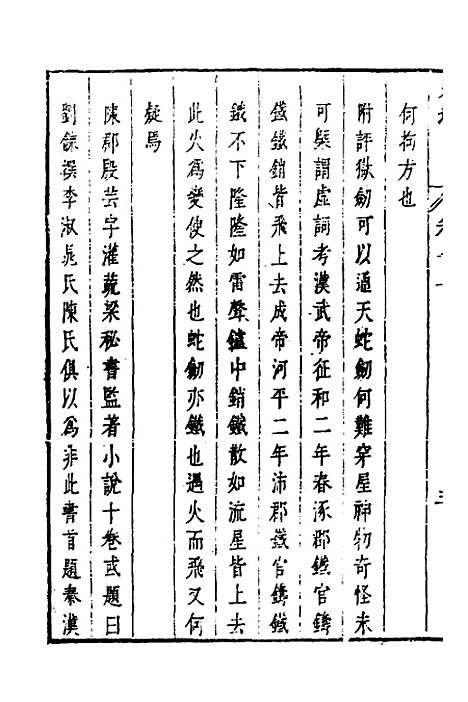 何拘方也
附評獄劒可以遁天蛇劒何難穿星神物奇怪未
可槩謂虛詞考漢武帝征和二年春涿郡鐵官鑄
鐵鐵銷皆飛上去成帝河平二年沛郡鐵官鑄鐵
鐵不下隆隆如雷聲鑪中銷鐵散如流星皆上去
此火爲變使之然也蛇劒亦鐵也遇火而飛又何
疑焉
陳郡殷芸字灌蔬梁秘書監著小說十卷或題曰
劉餗譔李淑晁氏陳氏俱以爲非此書首題秦漢